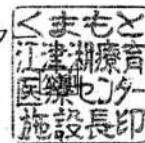 くまもと
江津湖療育
医療センター
施設長印